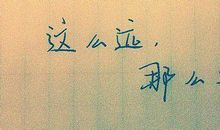 这么近，
那么